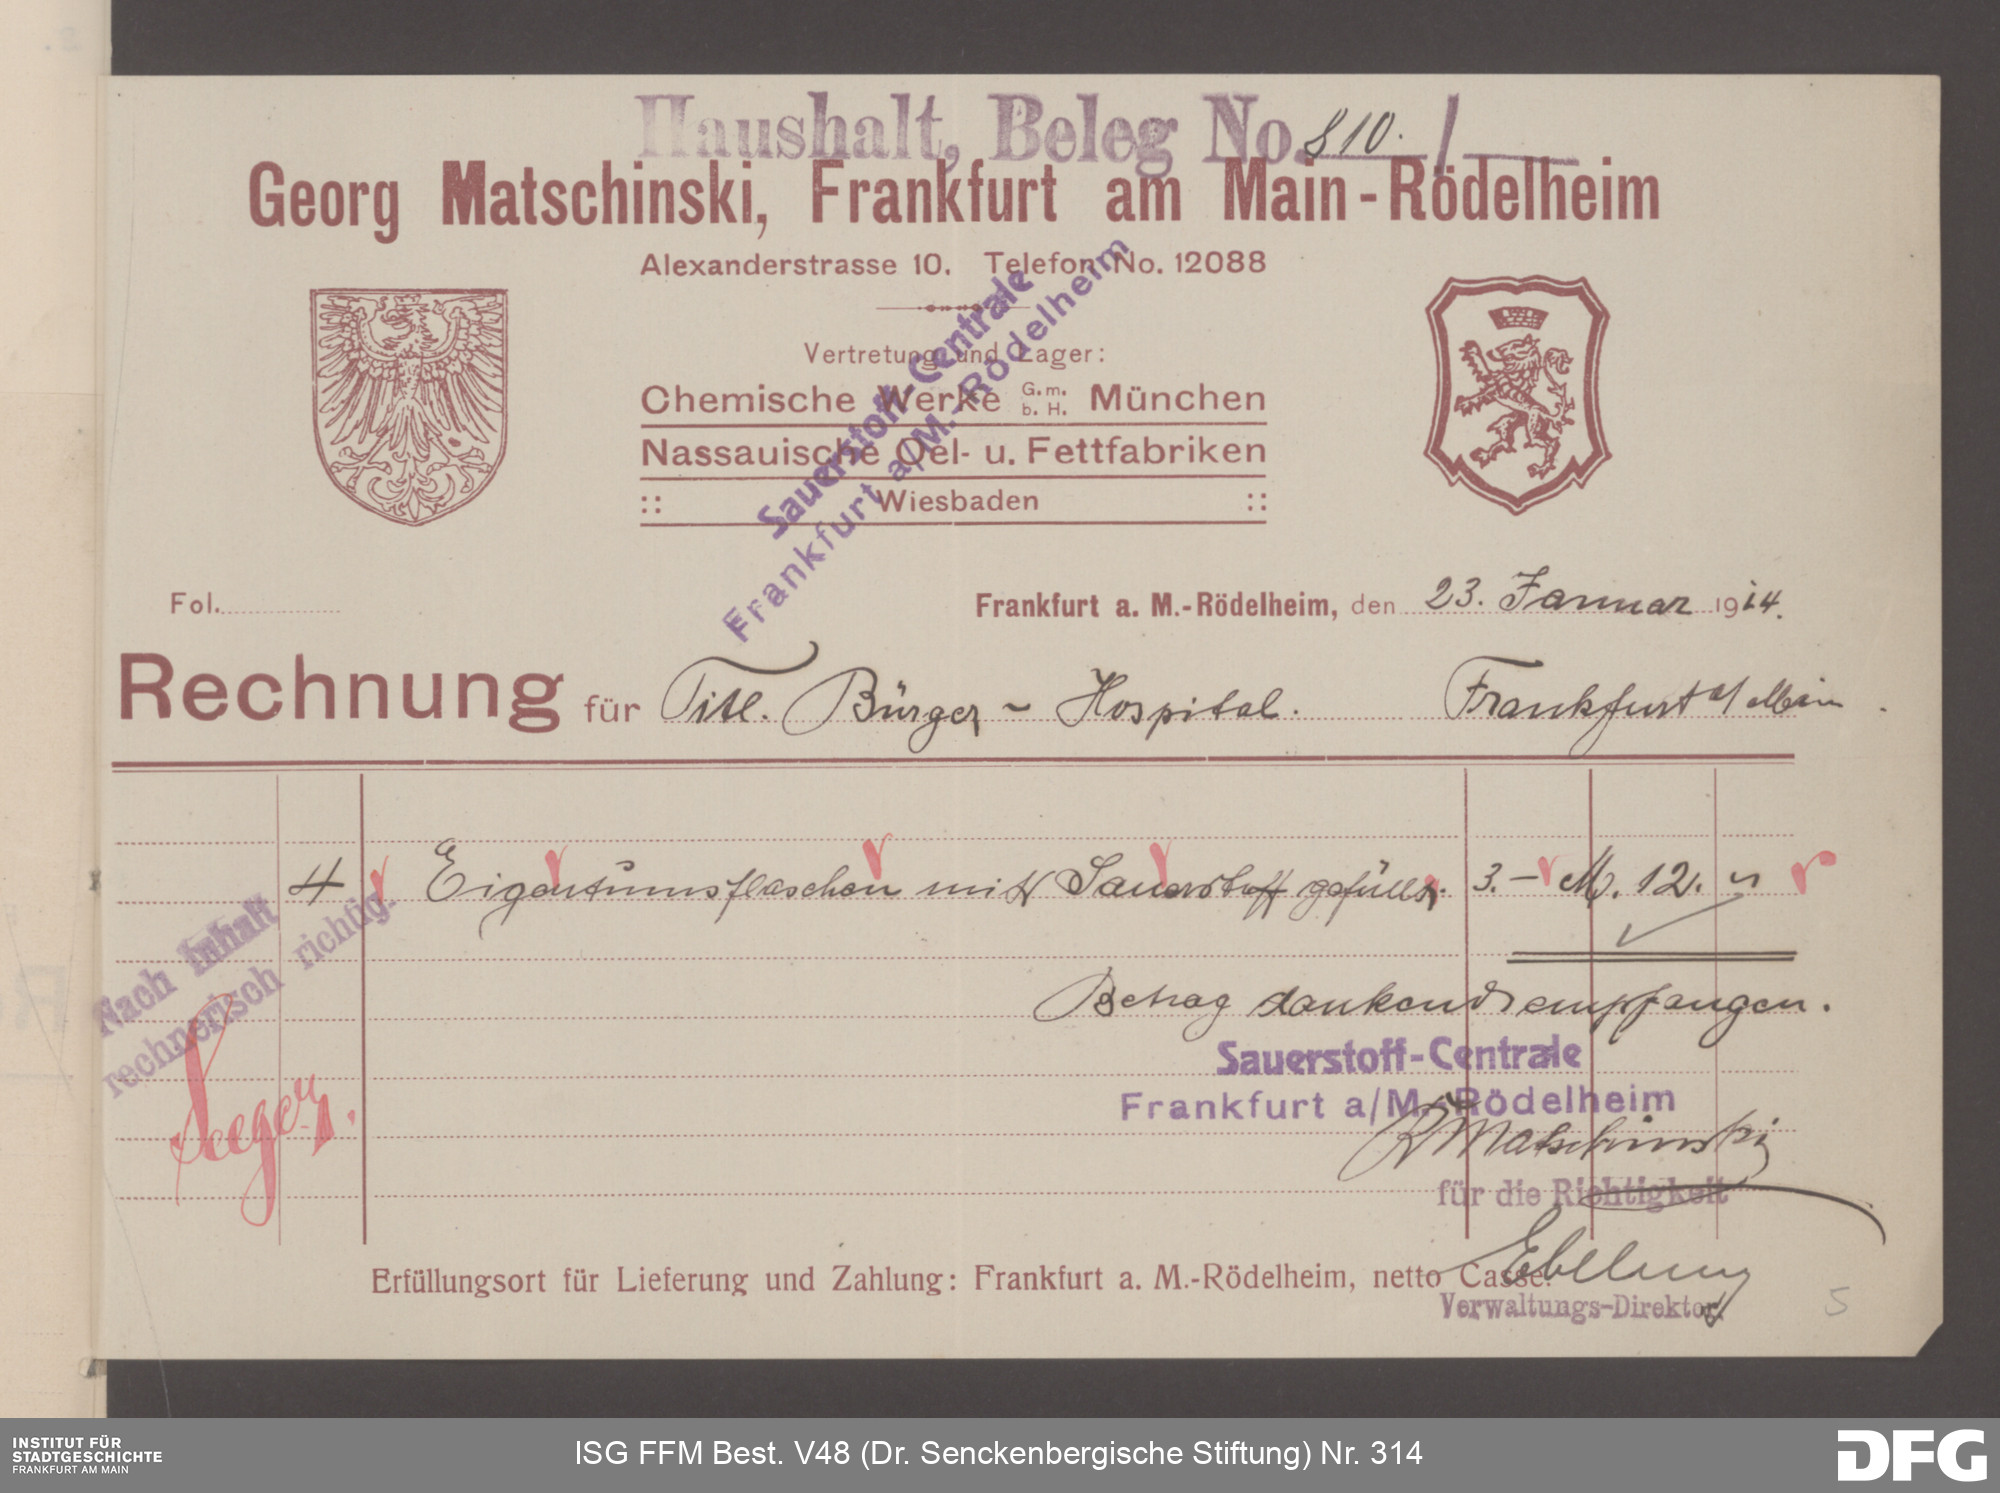 Haushalt, Beleg No. 810. /
Georg Matschinski, Frankfurt am Main-Rödelheim
Alexanderstrasse 10. Telefon No. 12088
Vertretung und Lager:
Chemische Werke G. m. b. H. München
Nassauische Oel- u. Fettfabriken
:: Wiesbaden ::
Sauerstoff-Centrale
Frankfurt a/M.-Rödelheim
Fol.
Frankfurt a. M.-Rödelheim, den 23. Januar 1914.
Rechnung für Titl. Bürger-Hospital. Frankfurt a/Main.
4 Eigentumsflaschen mit Sauerstoff gefüllt. 3.- M. 12. "
Nach Inhalt
rechnerisch richtig.
Betrag dankend empfangen.
Sauerstoff-Centrale
Frankfurt a/M.-Rödelheim
Matschinski
für die Richtigkeit
Erfüllungsort für Lieferung und Zahlung: Frankfurt a. M.-Rödelheim, netto Casse.
Verwaltungs-Direktor.
5
INSTITUT FÜR
STADTGESCHICHTE
FRANKFURT AM MAIN
ISG FFM Best. V48 (Dr. Senckenbergische Stiftung) Nr. 314
DFG